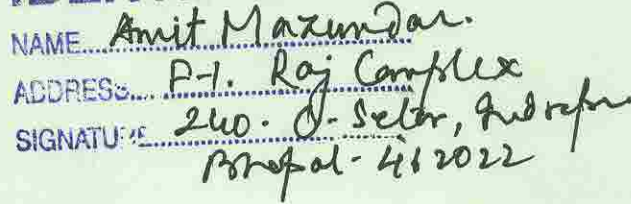 NAME... Amit Mazumdar.
ADDRESS.... P-1. Raj Complex
SIGNATURE 240. O- Sector, Indrapu
Bhopal - 462022